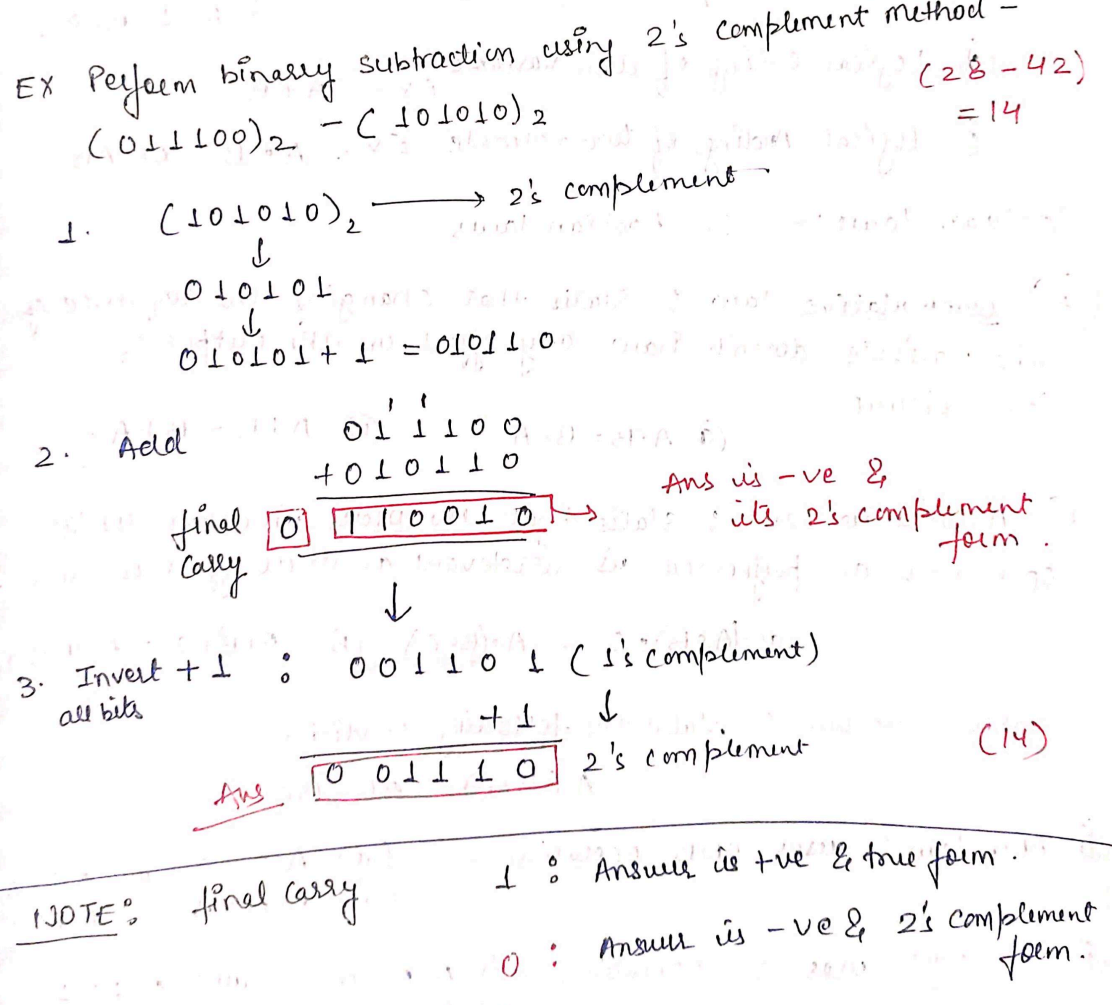 EX Perform binary subtraction using 2's complement method -
(011100)2 - (101010)2
(28 - 42)
= 14
1. (101010)2 → 2's complement -
↓
010101
↓
010101 + 1 = 010110
2. Add
1 1
011100
+010110
final carry 0 110010 → Ans is -ve &
its 2's complement
form.
↓
3. Invert + 1 : 001101 (1's complement)
all bits
+1 ↓
Ans 001110 2's complement (14)
NOTE: final carry 1 : Answer is +ve & true form.
0 : Answer is -ve & 2's complement
form.